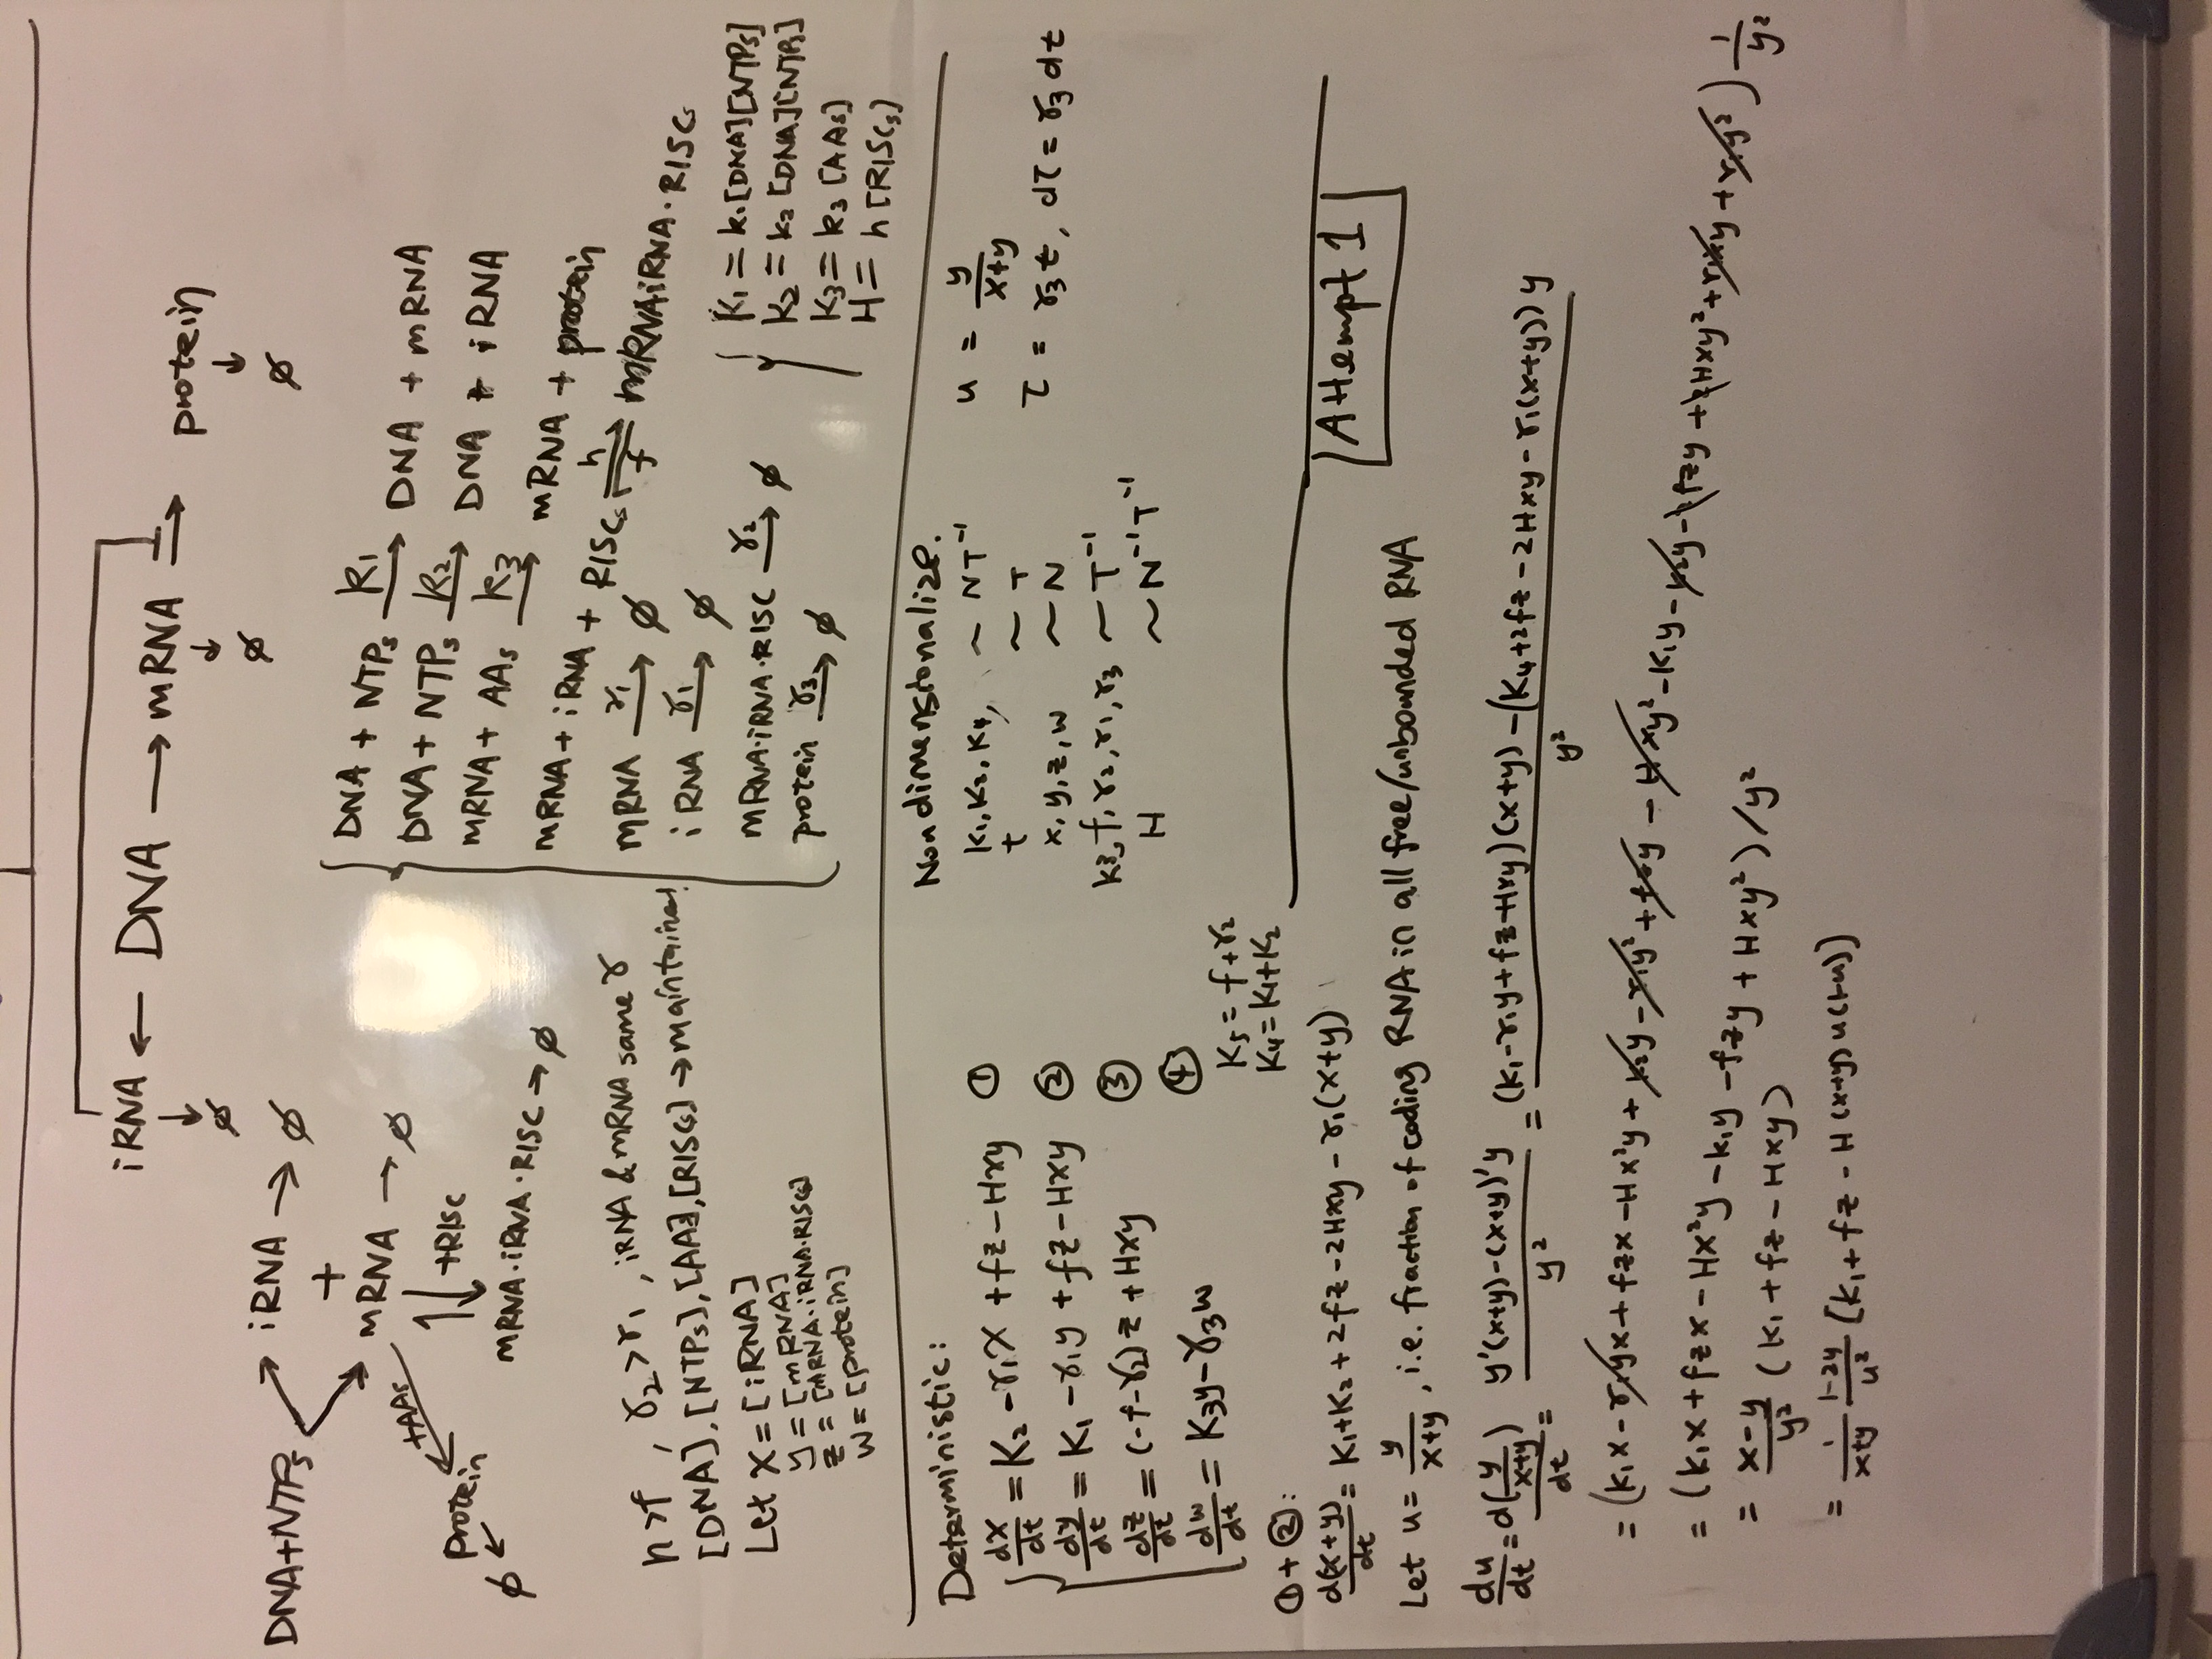 iRNA ← DNA → mRNA ⇒ protein
↓ ↓ ↓
∅ ∅ ∅
DNA+NTPs
iRNA → ∅
+
mRNA → ∅
+AAs
protein
∅
+RISC
mRNA·iRNA·RISC → ∅
h>f , γ2>γ1 , iRNA & mRNA same γ
[DNA], [NTPs], [AAs], [RISCs] → maintained!
Let x = [iRNA]
y = [mRNA]
z = [mRNA·iRNA·RISCs]
w = [protein]
DNA + NTPs —k1→ DNA + mRNA
DNA + NTPs —k2→ DNA + iRNA
mRNA + AAs —k3→ mRNA + protein
mRNA + iRNA + RISCs ⇌ mRNAiRNA·RISCs
h
f
mRNA —γ1→ ∅
iRNA —γ1→ ∅
mRNA·iRNA·RISC —γ2→ ∅
protein —γ3→ ∅
K1 = k1[DNA][NTPs]
K2 = k2[DNA][NTPs]
K3 = k3[AAs]
H = h[RISCs]
Deterministic:
dx/dt = K2 - γ1x + fz - Hxy ①
dy/dt = K1 - γ1y + fz - Hxy ②
dz/dt = (-f-γ2)z + Hxy ③
dw/dt = K3y - γ3w ④
K5 = f+γ2
K4 = K1+K2
Nondimensionalize.
K1, K2, K4, ~ NT⁻¹
t ~ T
x, y, z, w ~ N
k3, f, γ2, γ1, γ3 ~ T⁻¹
H ~ N⁻¹T⁻¹
u = y/(x+y)
τ = γ3t, dτ = γ3dt
①+②:
d(x+y)/dt = K1+K2+2fz-2Hxy-γ1(x+y)
Attempt 1
Let u = y/(x+y), i.e. fraction of coding RNA in all free/unbounded RNA
du/dt = d(y/(x+y))/dt = (y'(x+y)-(x+y)'y)/y² = ((K1-γ1y+fz-Hxy)(x+y)-(K4+2fz-2Hxy-γ1(x+y))y)/y²
= (K1x-γ1yx+fzx-Hx²y+K2y-γ1y²+fzy-Hxy²-K1y-K2y-2fzy+2Hxy²+γ1xy+γ1y²) 1/y²
= (K1x+fzx-Hx²y-K1y-fzy+Hxy²)/y²
= (x-y)/y² (K1+fz-Hxy)
= 1/(x+y) (1-2u)/u² [K1+fz-H(x+y)u(1-u)]